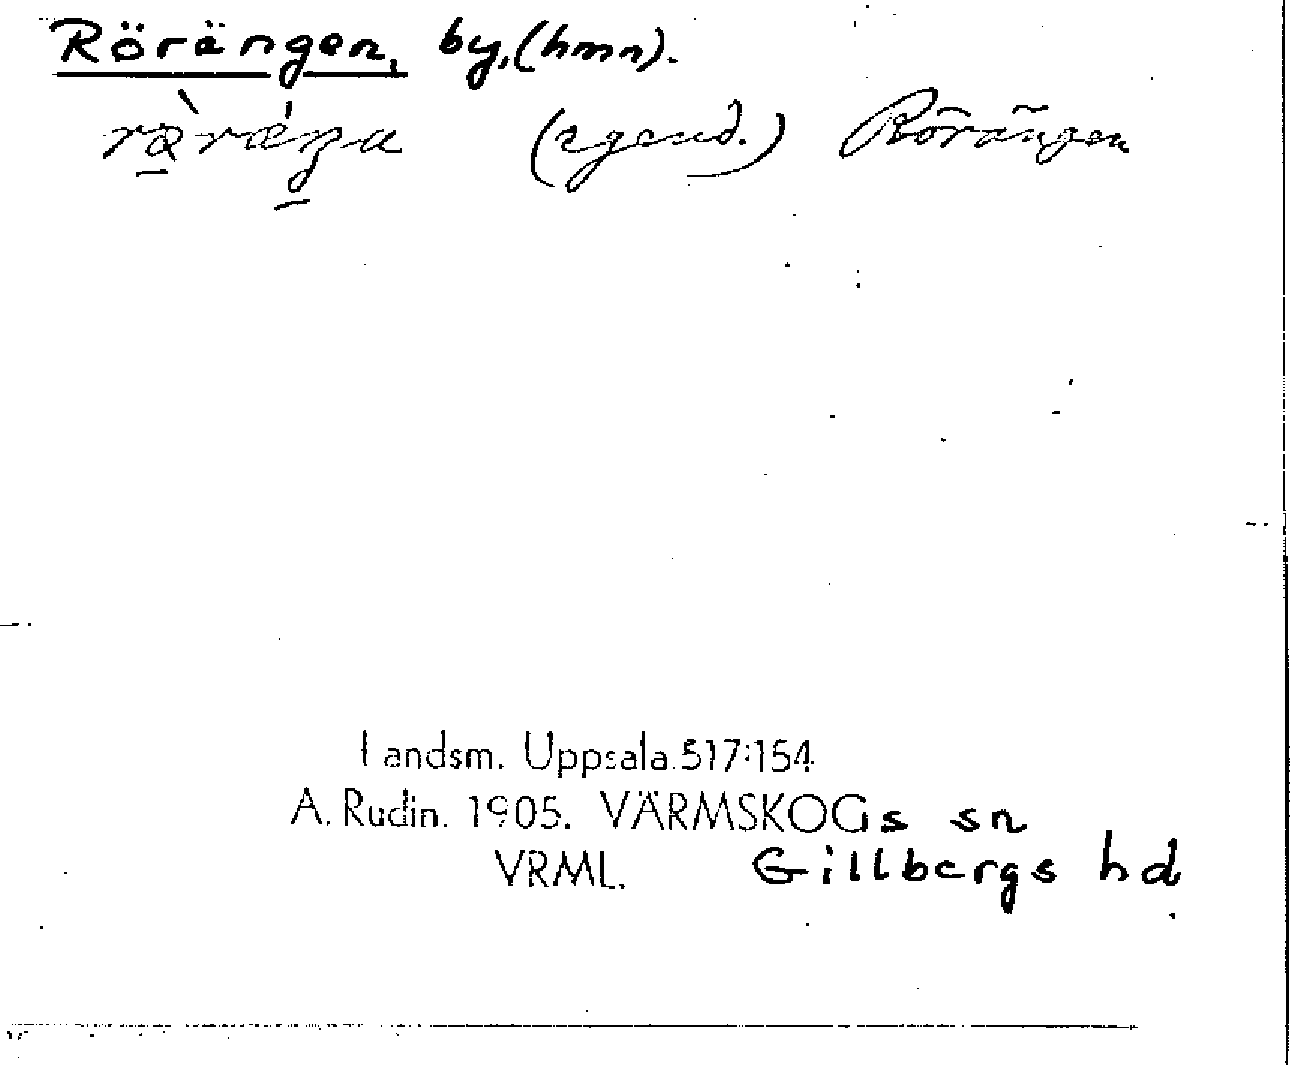 Rörängen, by, (hmn).
(egend.) Rörängen
Landsm. Uppsala 517:154
A. Rudin. 1905. VÄRMSKOGs sn
VRML. Gillbergs hd